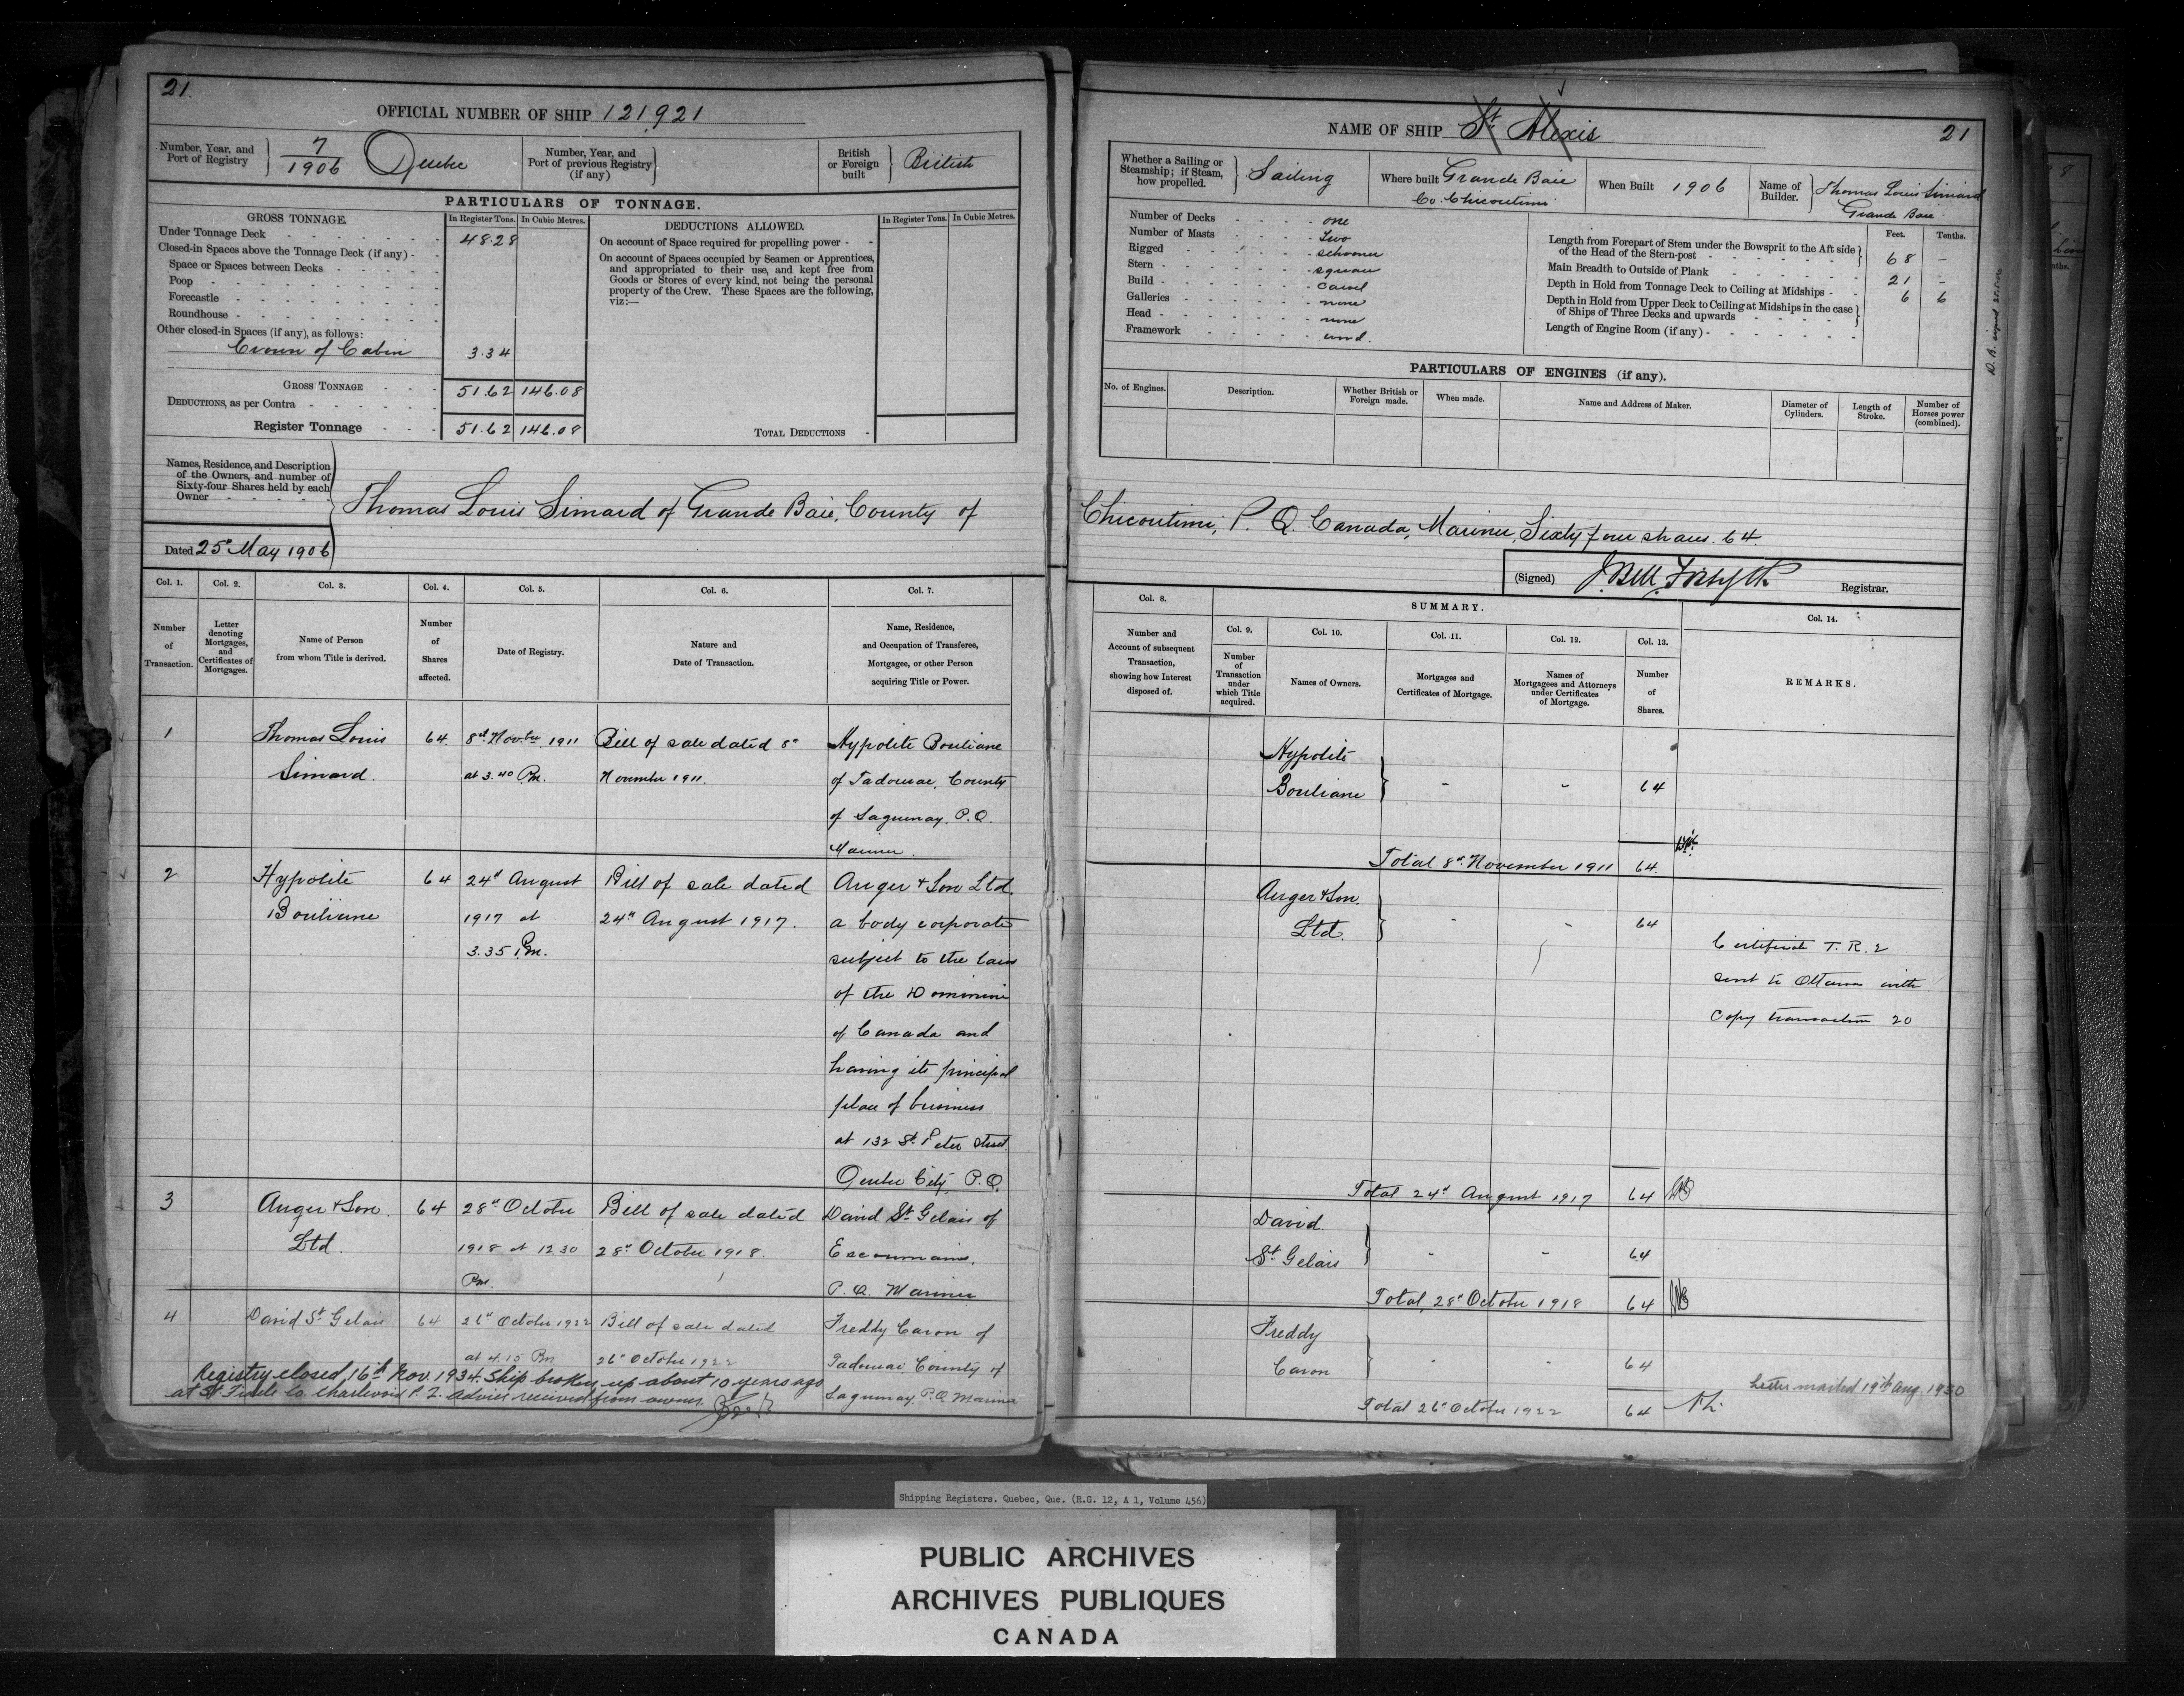 21.
OFFICIAL NUMBER OF SHIP 121,921
Number, Year, and Port of Registry
7
1906
Quebec
Number, Year, and Port of previous Registry (if any)
British or Foreign built
British
PARTICULARS OF TONNAGE.
GROSS TONNAGE.
In Register Tons. In Cubic Metres.
DEDUCTIONS ALLOWED.
In Register Tons. In Cubic Metres.
Under Tonnage Deck 48.28
Closed-in Spaces above the Tonnage Deck (if any) -
Space or Spaces between Decks
Poop
Forecastle
Roundhouse
Other closed-in Spaces (if any), as follows:
Crown of Cabin 3.34
GROSS TONNAGE 51.62 146.08
DEDUCTIONS, as per Contra
Register Tonnage 51.62 146.08
On account of Space required for propelling power -
On account of Spaces occupied by Seamen or Apprentices,
and appropriated to their use, and kept free from
Goods or Stores of every kind, not being the personal
property of the Crew. These Spaces are the following,
viz:—
TOTAL DEDUCTIONS
Names, Residence, and Description
of the Owners, and number of
Sixty-four Shares held by each
Owner
Thomas Louis Simard of Grande Baie, County of
Dated 25th May 1906
Col. 1. Col. 2. Col. 3. Col. 4. Col. 5. Col. 6. Col. 7.
Number of Transaction.
Letter denoting Mortgages, and Certificates of Mortgages.
Name of Person from whom Title is derived.
Number of Shares affected.
Date of Registry.
Nature and Date of Transaction.
Name, Residence, and Occupation of Transferee, Mortgagee, or other Person acquiring Title or Power.
1 Thomas Louis 64. 8th Novber 1911 Bill of sale dated 8th Hypolite Bouliane
Simard. at 3.40 Pm. November 1911. of Tadousac, County
of Saguenay. P.Q.
Mariner.
2 Hypolite 64 24th August Bill of sale dated Anger & Son Ltd
Bouliane 1917 at 24th August 1917. a body corporate
3.35 Pm. subject to the laws
of the Dominion
of Canada and
having its principal
place of business
at 132 St. Peter street
Quebec City, P.Q.
3 Anger & Son. 64 28th October Bill of sale dated David St Gelais of
Ltd. 1918 at 12.30 28th October 1918. Escoumains,
Pm. P.Q. Mariner
4 David St Gelais 64 26th October 1922 Bill of sale dated Freddy Caron of
at 4.15 Pm 26th October 1922 Tadousac County of
Saguenay, P.Q. Mariner
Registry closed, 16th Nov. 1934. Ship broken up about 10 years ago
at St Fidele Co. Charlevoix P.Q. Advice received from owner.
21
NAME OF SHIP St Alexis
Whether a Sailing or Steamship; if Steam, how propelled.
Sailing
Where built Grande Baie
Co. Chicoutimi
When Built 1906
Name of Builder.
Thomas Louis Simard
Grande Baie.
Number of Decks one
Number of Masts Two
Rigged schooner
Stern square
Build carvel
Galleries none
Head none
Framework wood.
Feet. Tenths.
Length from Forepart of Stem under the Bowsprit to the Aft side
of the Head of the Stern-post 68 -
Main Breadth to Outside of Plank 21 -
Depth in Hold from Tonnage Deck to Ceiling at Midships 6 6
Depth in Hold from Upper Deck to Ceiling at Midships in the case
of Ships of Three Decks and upwards
Length of Engine Room (if any)
PARTICULARS OF ENGINES (if any).
No. of Engines.
Description.
Whether British or Foreign made.
When made.
Name and Address of Maker.
Diameter of Cylinders.
Length of Stroke.
Number of Horses power (combined).
Chicoutimi, P.Q. Canada, Mariner, Sixty four shares. 64.
(Signed) J. Bell Forsyth Registrar.
Col. 8.
SUMMARY.
Col. 9. Col. 10. Col. 11. Col. 12. Col. 13. Col. 14.
Number and Account of subsequent Transaction, showing how Interest disposed of.
Number of Transaction under which Title acquired.
Names of Owners.
Mortgages and Certificates of Mortgage.
Names of Mortgagees and Attorneys under Certificates of Mortgage.
Number of Shares.
REMARKS.
Hypolite
Bouliane - - 64
Total 8th November 1911 64.
Anger & Son.
Ltd. - - 64
Certificate T. R. 2
sent to Ottawa with
Copy transaction 20
Total 24th August 1917 64
David
St Gelais - - 64
Total 28th October 1918 64
Freddy
Caron - - 64
Letter mailed 19th Aug. 1930
Total 26th October 1922 64
Shipping Registers. Quebec, Que. (R.G. 12, A 1, Volume 456)
PUBLIC ARCHIVES
ARCHIVES PUBLIQUES
CANADA